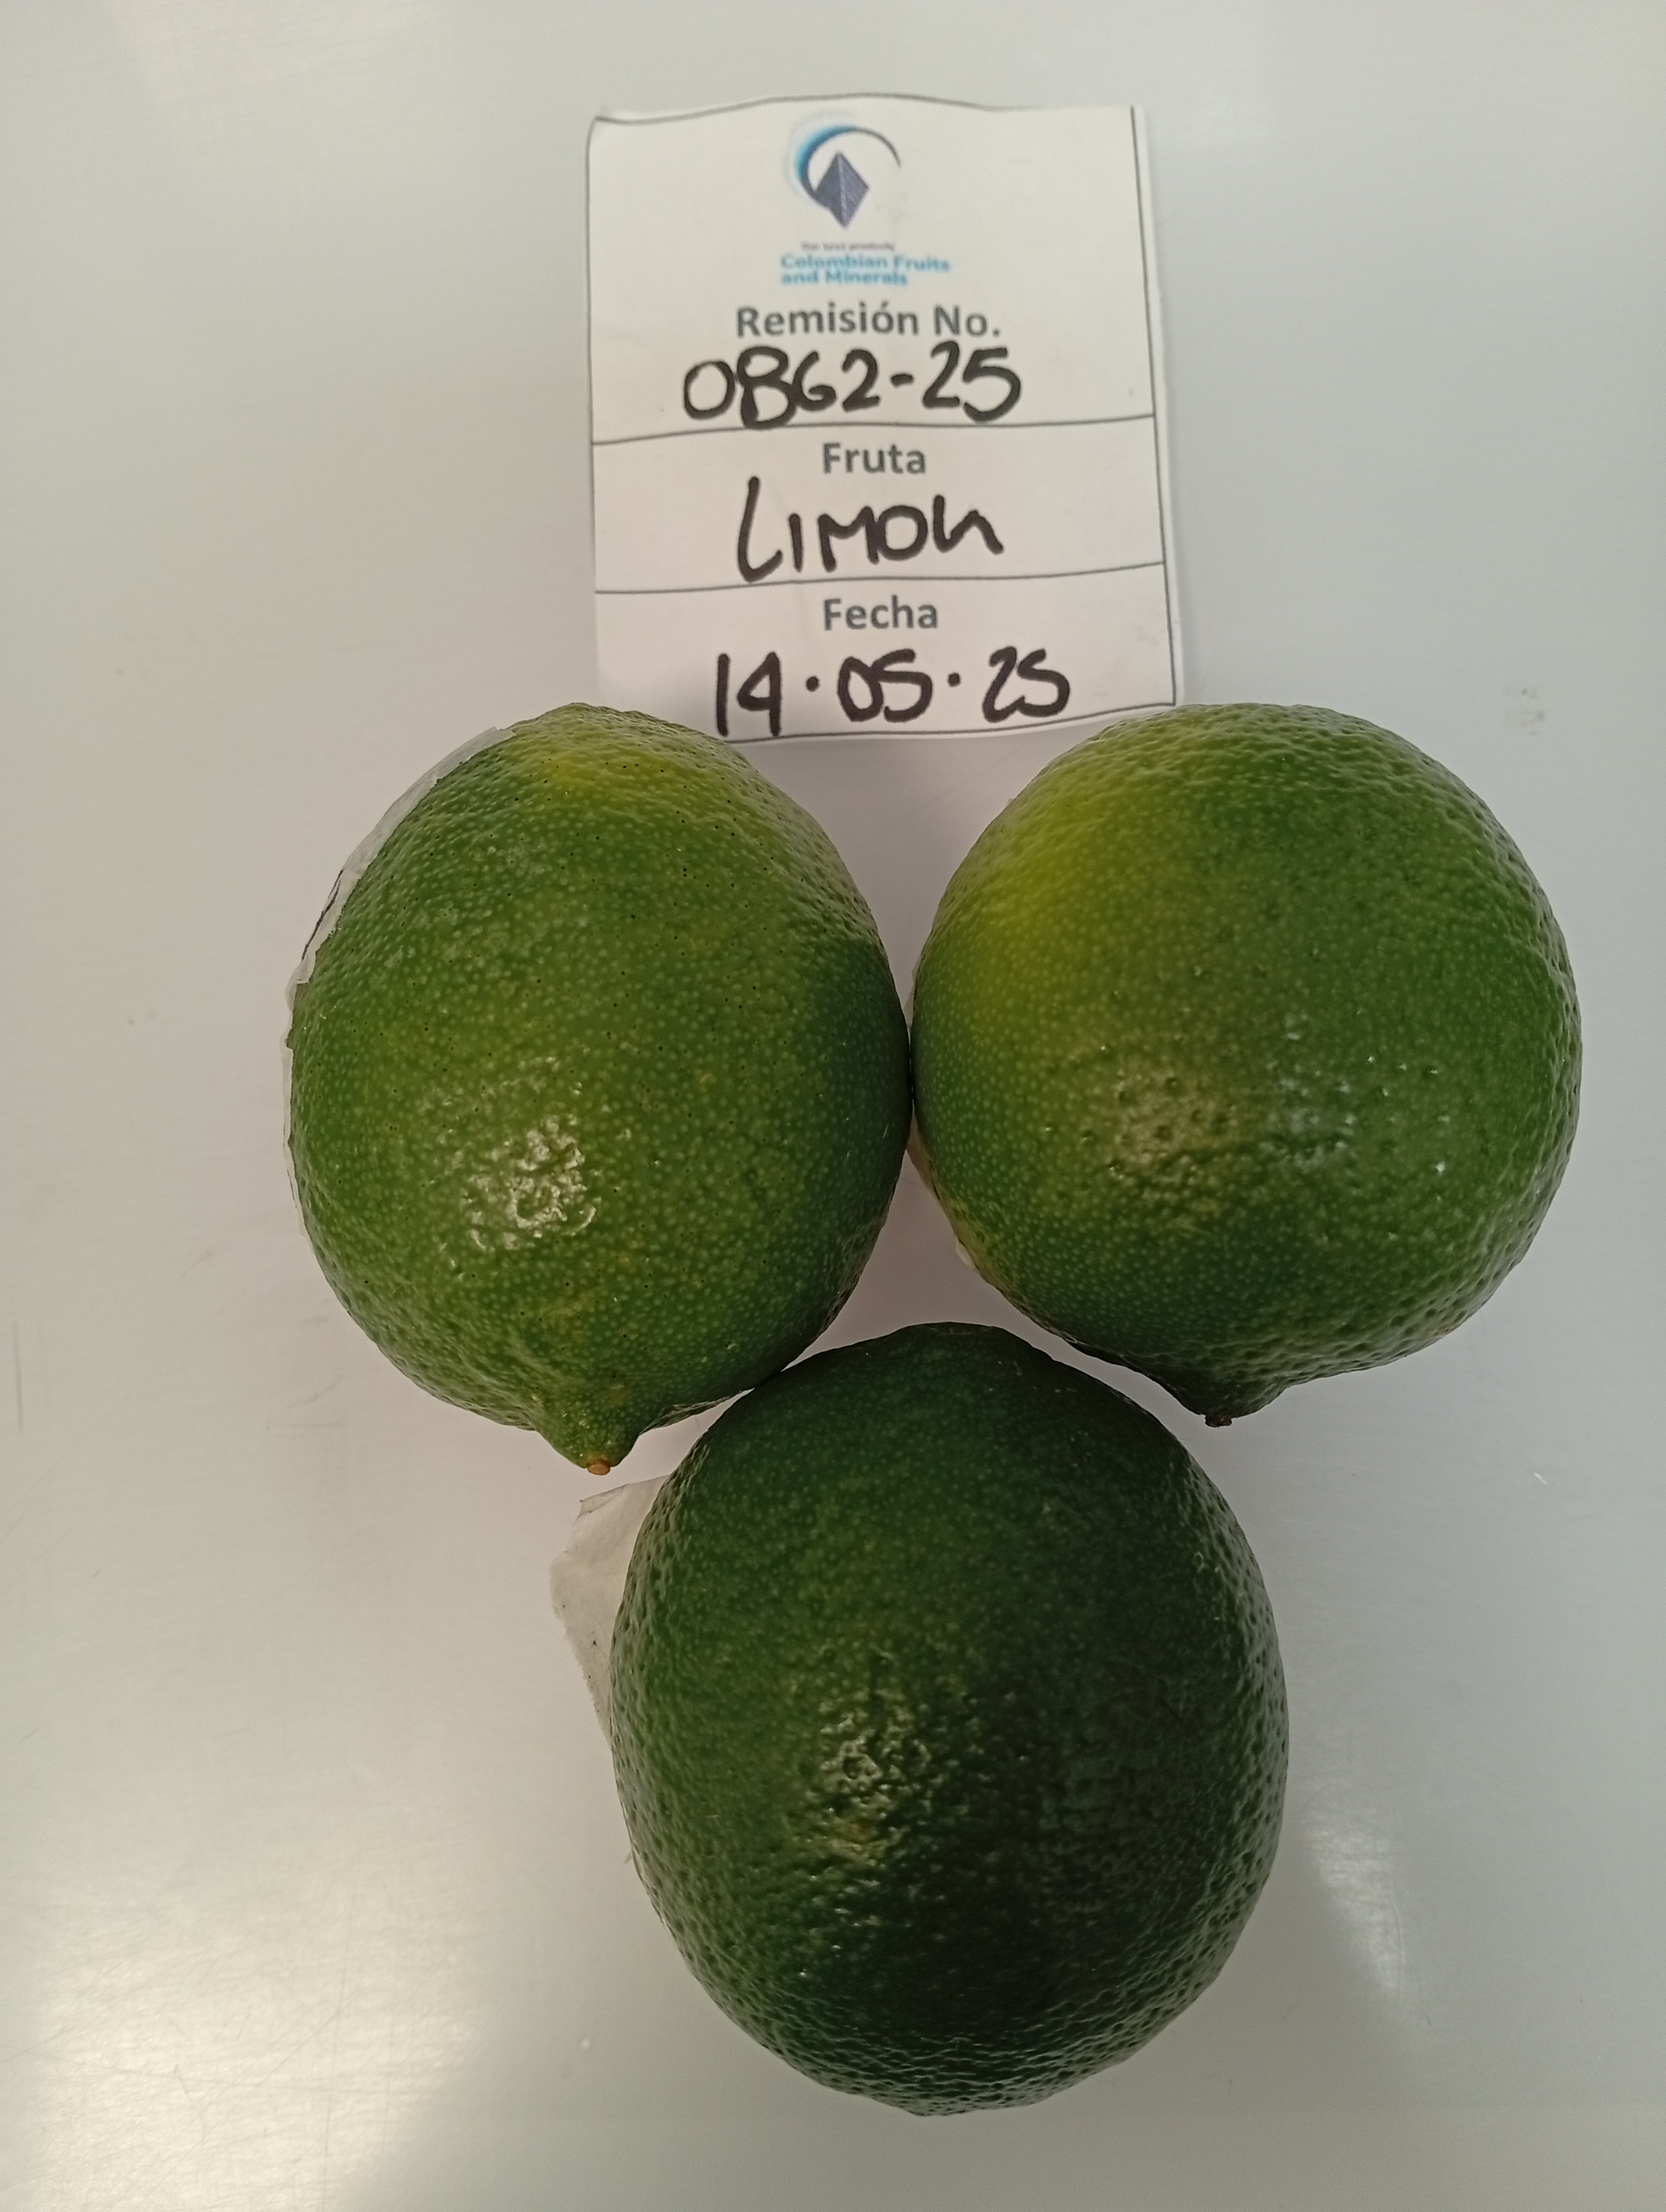 The best products
Colombian Fruits
and Minerals
Remisión No.
0862-25
Fruta
LIMON
Fecha
14.05.25